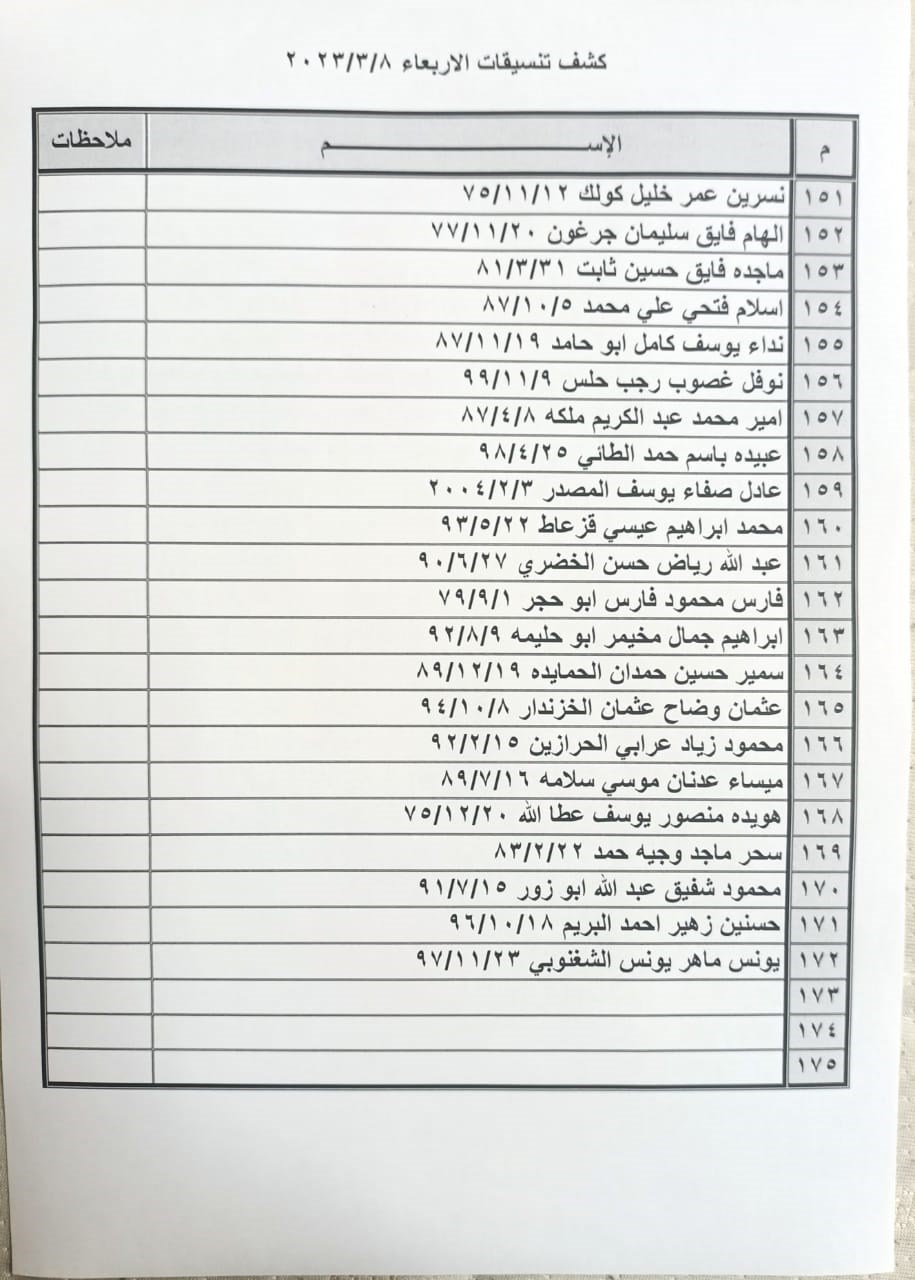 كشف تنسيقات الاربعاء ٢٠٢٣/٣/٨
م الإســـــم ملاحظات
١٥١ نسرين عمر خليل كولك ٧٥/١١/١٢
١٥٢ الهام فايق سليمان جرغون ٧٧/١١/٢٠
١٥٣ ماجده فايق حسين ثابت ٨١/٣/٣١
١٥٤ اسلام فتحي علي محمد ٨٧/١٠/٥
١٥٥ نداء يوسف كامل ابو حامد ٨٧/١١/١٩
١٥٦ نوفل غصوب رجب حلس ٩٩/١١/٩
١٥٧ امير محمد عبد الكريم ملكه ٨٧/٤/٨
١٥٨ عبيده باسم حمد الطائي ٩٨/٤/٢٥
١٥٩ عادل صفاء يوسف المصدر ٢٠٠٤/٢/٣
١٦٠ محمد ابراهيم عيسي قزعاط ٩٣/٥/٢٢
١٦١ عبد الله رياض حسن الخضري ٩٠/٦/٢٧
١٦٢ فارس محمود فارس ابو حجر ٧٩/٩/١
١٦٣ ابراهيم جمال مخيمر ابو حليمه ٩٢/٨/٩
١٦٤ سمير حسين حمدان الحمايده ٨٩/١٢/١٩
١٦٥ عثمان وضاح عثمان الخزندار ٩٤/١٠/٨
١٦٦ محمود زياد عرابي الحرازين ٩٢/٢/١٥
١٦٧ ميساء عدنان موسي سلامه ٨٩/٧/١٦
١٦٨ هويده منصور يوسف عطا الله ٧٥/١٢/٢٠
١٦٩ سحر ماجد وجيه حمد ٨٣/٢/٢٢
١٧٠ محمود شفيق عبد الله ابو زور ٩١/٧/١٥
١٧١ حسنين زهير احمد البريم ٩٦/١٠/١٨
١٧٢ يونس ماهر يونس الشغنوبي ٩٧/١١/٢٣
١٧٣
١٧٤
١٧٥